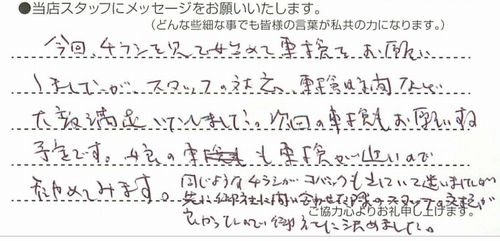 ●当店スタッフにメッセージをお願いいたします。
(どんな些細な事でも皆様の言葉が私共の力になります。)
今回、チラシを見て始めて車検をお願い
しましたが、スタッフの対応、車検時間など
大変満足いたしました。次回の車検もお願いする
予定です。娘の車も車検が近いので
すすめてみます。
同じようなチラシがコバックも出ていて迷いましたが
先に御社に問い合わせた際のスタッフの対応が
良かったので御社に決めました。
ご協力心よりお礼申し上げます。